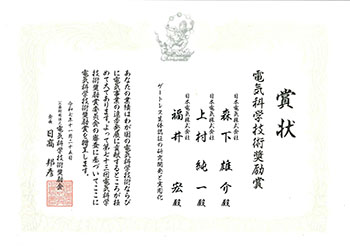 賞状
電気科学技術奨励賞
日本電気株式会社
森下雄介殿
日本電気株式会社
上村純一殿
日本電気株式会社
福井宏殿
ゲートレス生体認証の研究開発と実用化
あなたの業績はわが国の電気科学技術ならび
に電気事業の進歩発展に貢献するところが極
めて大であります。よって第七十三回電気科学
技術奨励賞委員会の審査に基づいてここに
電気科学技術奨励賞を贈呈します。
令和七年十一月二十五日
公益財団法人 電気科学技術奨励会
会長 日髙邦彦